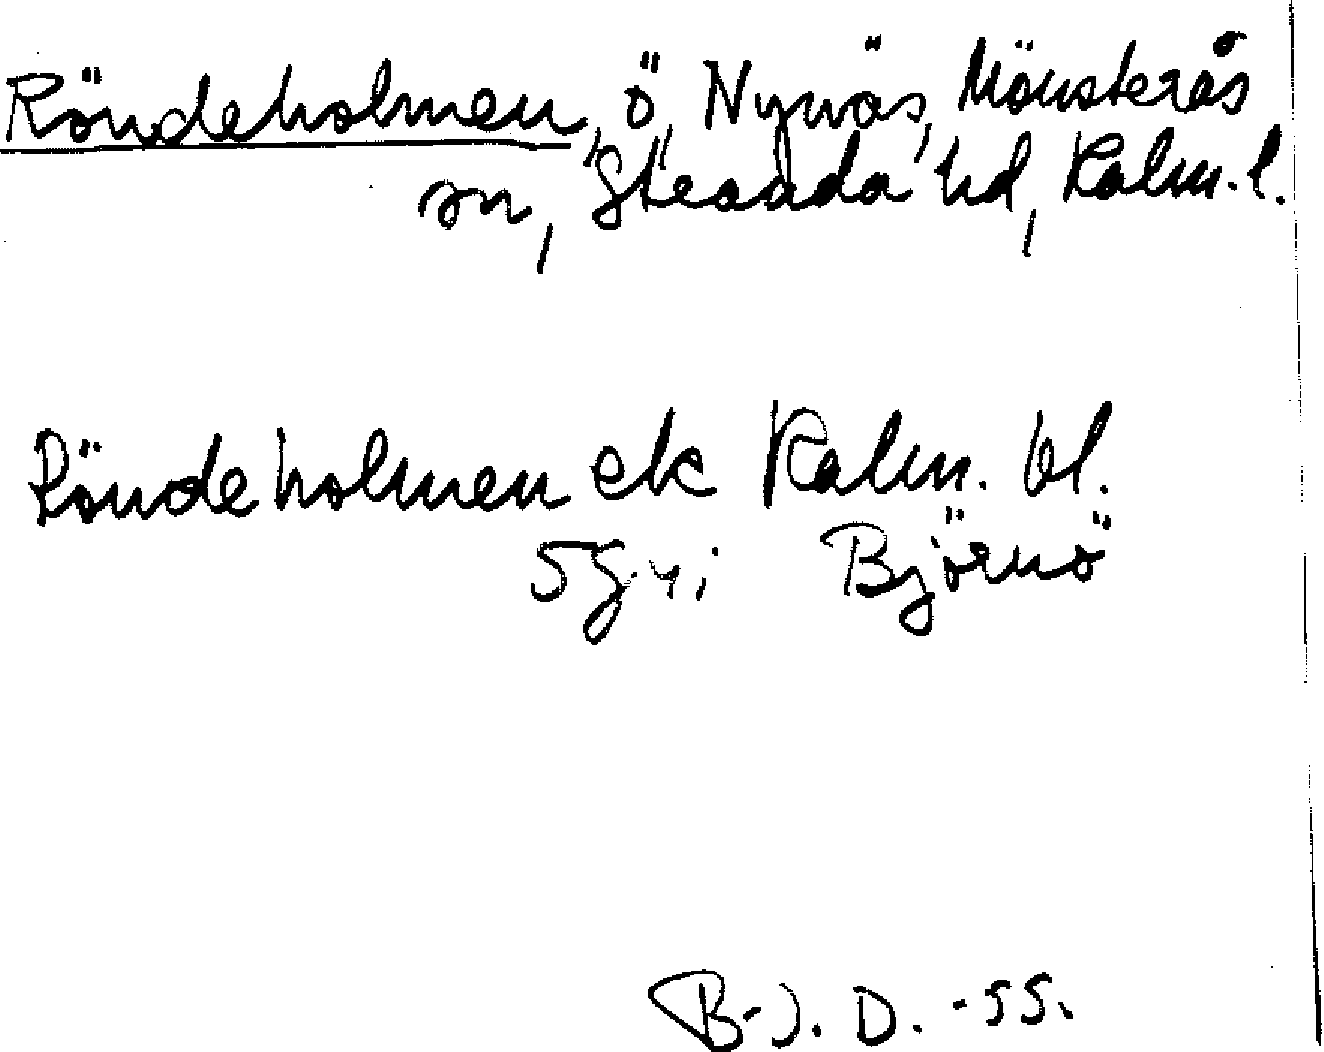 Röndeholmen, ö, Nynäs, Mönsterås
sn, Stranda hd, Kalm. l.
Röndeholmen ek Kalm. bl.
5g Björnö
B-J. D. -55.